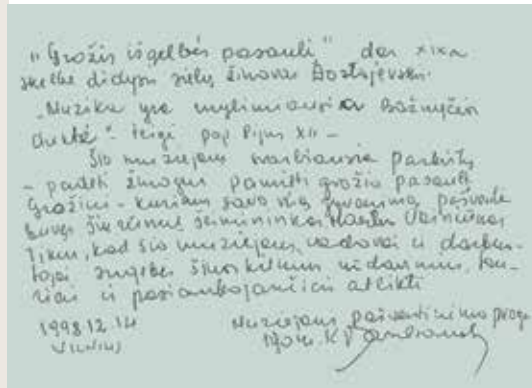 „Grožis išgelbės pasaulį“ dar XIX a
skelbė didysis sielų žinovas Dostojevskis.
„Muzika yra mylimiausia Bažnyčios
dukté“ - teigė pop Pijus XII –
Šio muziejaus svarbiausia paskirtis
- padėti žmogui pamilti grožio pasaulį
Grožiui - kuriam savo visą gyvenimą pašventė
buvęs šių rūmų šeimininkas
Tikiu, kad šio muziejaus vadovai ir darbuo-
tojai sugebės šį uždavinį
ir pasiaukojančiai atlikti
1998.12.14 Muziejaus pašventinimo proga
VILNIUS